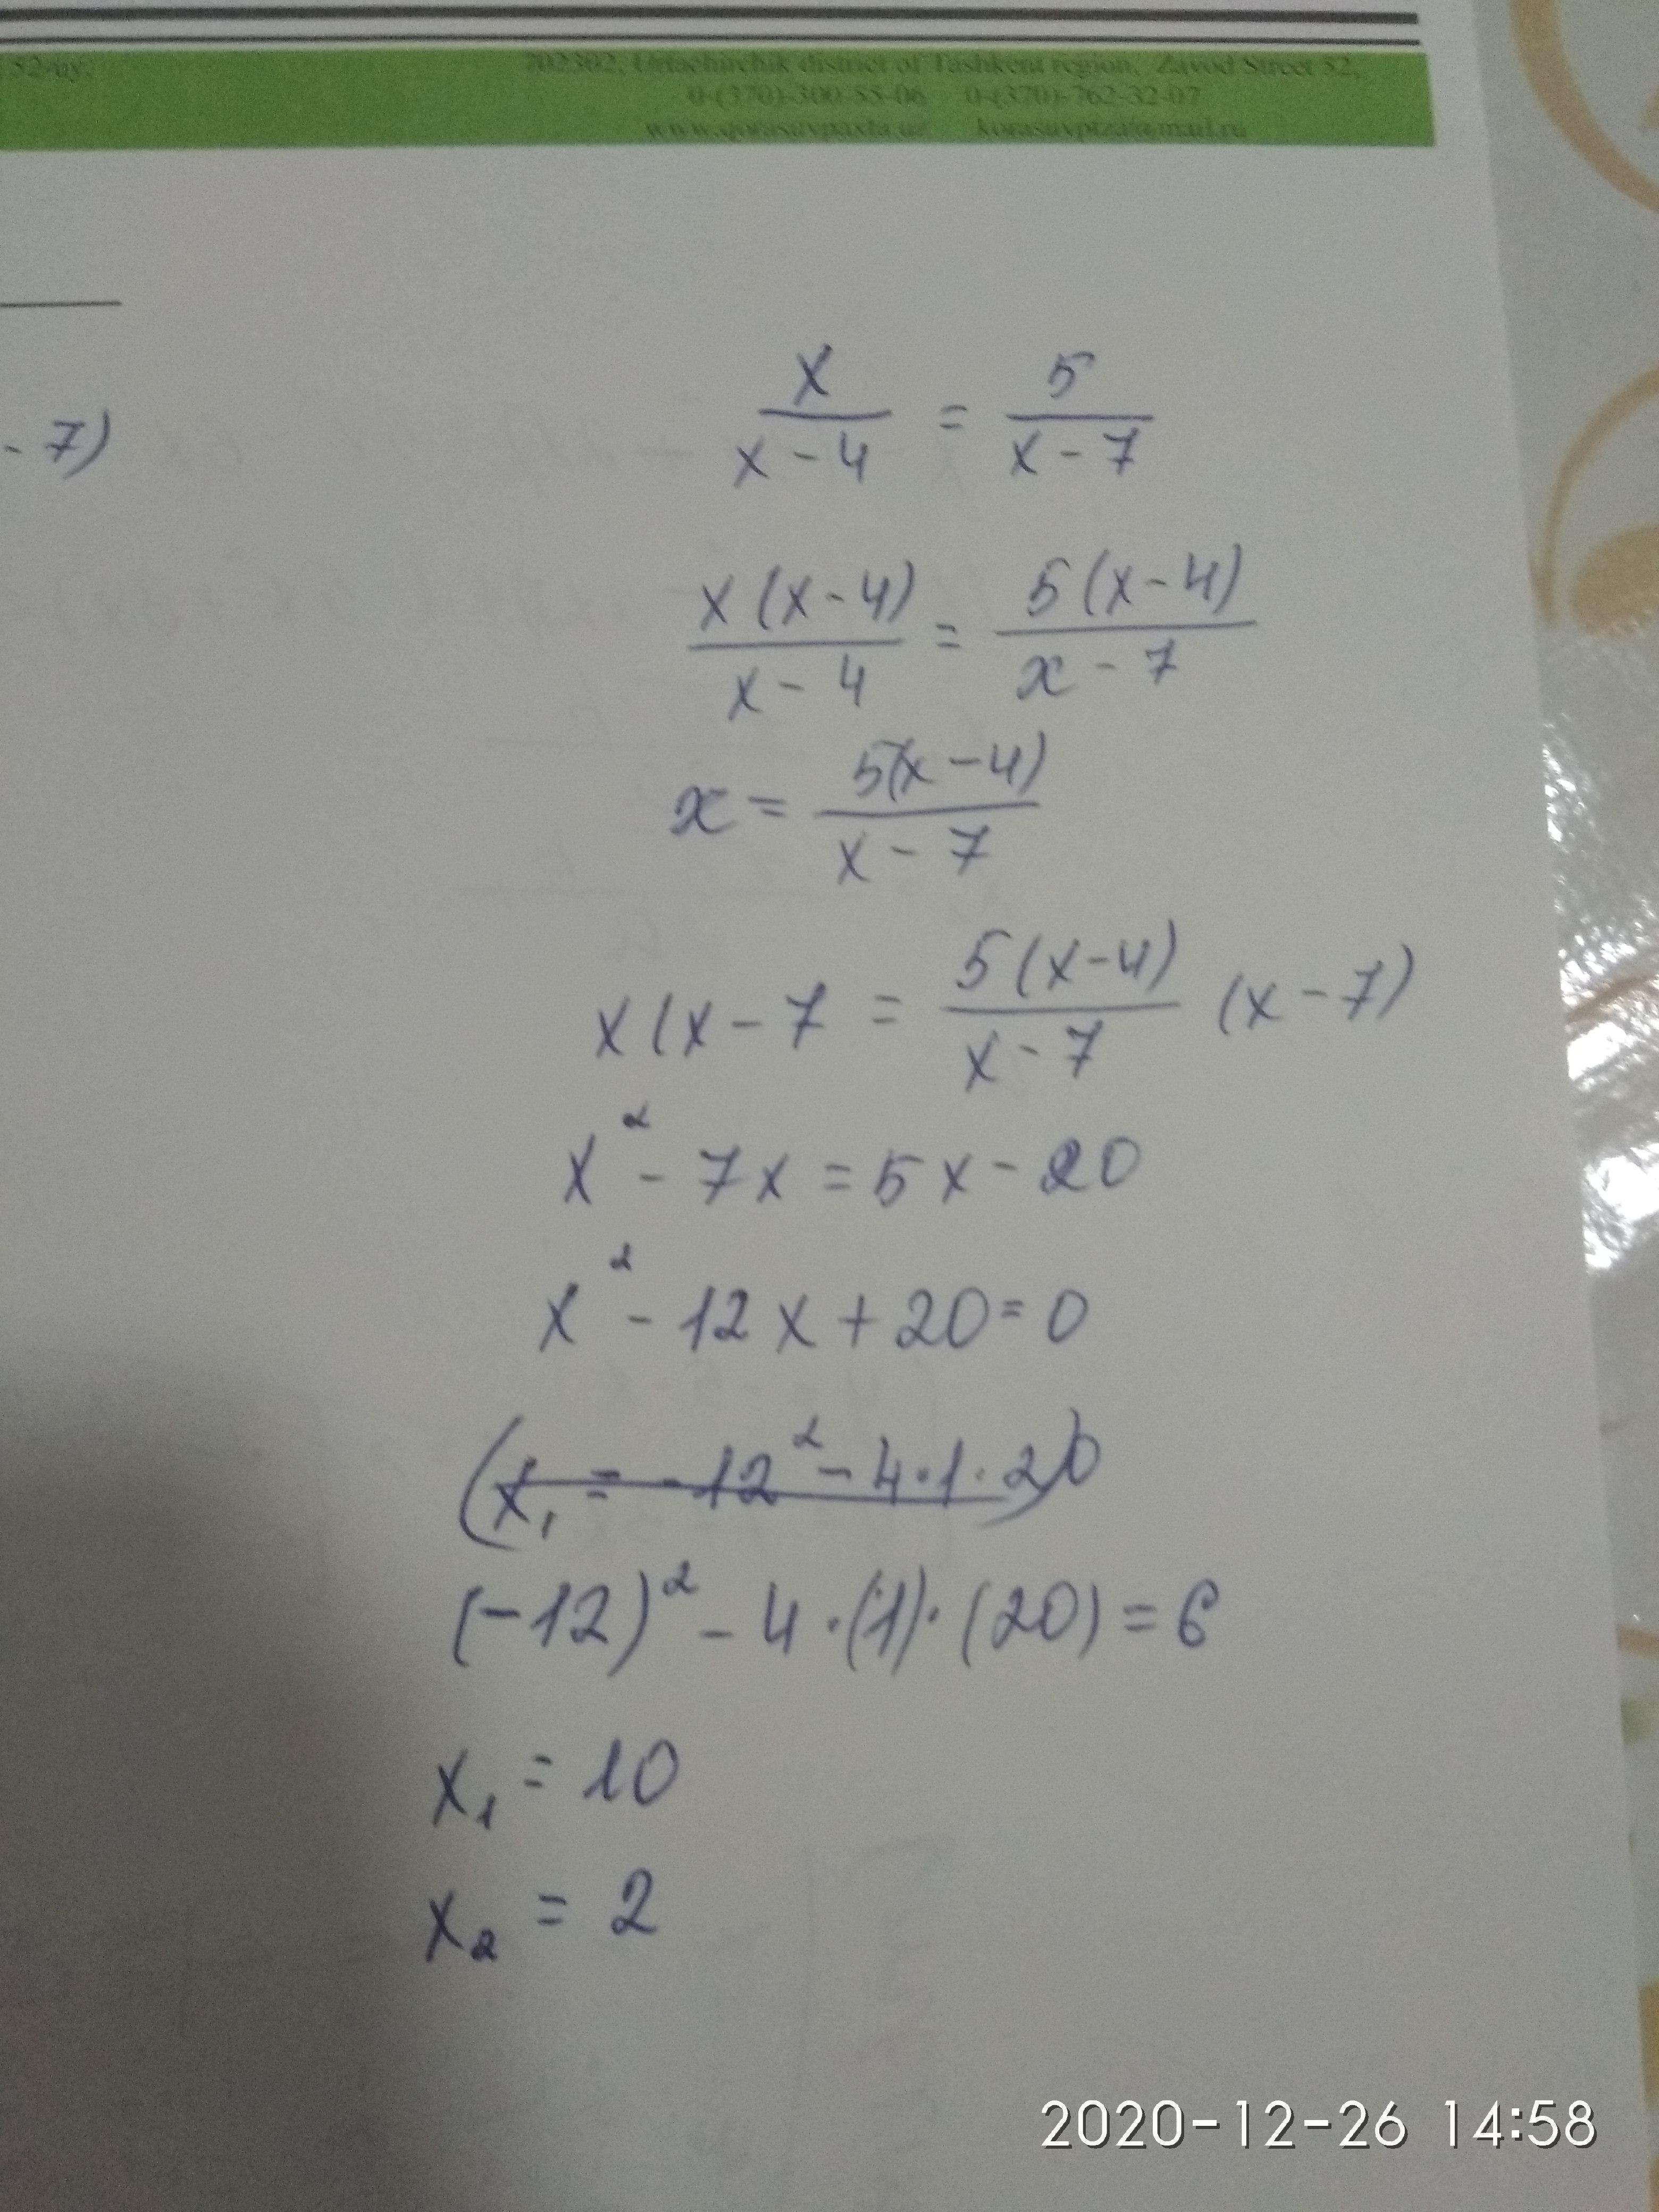 52-uy.
702302, Urtachirchik district of Tashkent region, Zavod Street 52,
0-(370)-300-55-06 0-(370)-762-32-07
www.qorasuvpaxta.uz korasuvptz@mail.ru
- 7)
x/(x - 4) = 5/(x - 7)
x(x - 4)/(x - 4) = 5(x - 4)/(x - 7)
x = 5(x - 4)/(x - 7)
x(x - 7 = 5(x - 4)/(x - 7) (x - 7)
x² - 7x = 5x - 20
x² - 12x + 20 = 0
(x₁ = -12² - 4·1·20
(-12)² - 4·(1)·(20) = 6
x₁ = 10
x₂ = 2
2020-12-26 14:58